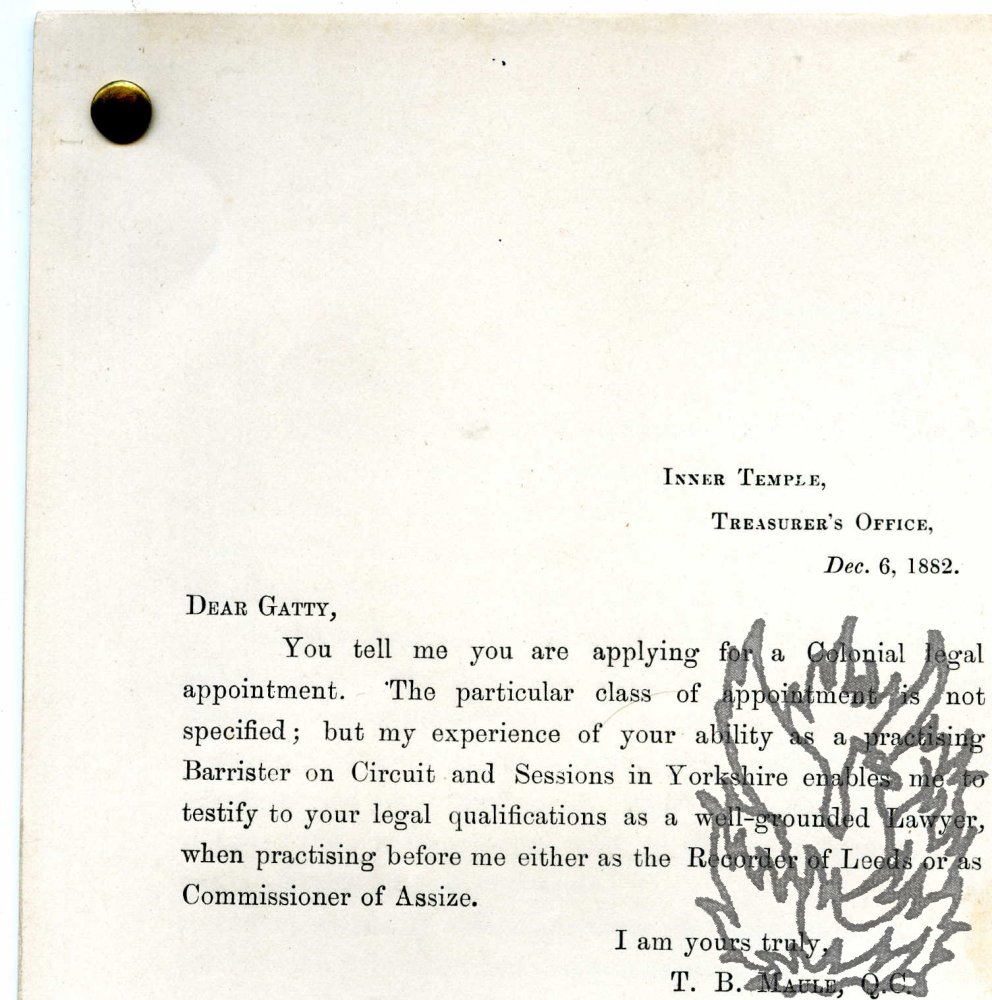 INNER TEMPLE,
TREASURER'S OFFICE,
Dec. 6, 1882.
DEAR GATTY,
You tell me you are applying for a Colonial legal
appointment. The particular class of appointment is not
specified; but my experience of your ability as a practising
Barrister on Circuit and Sessions in Yorkshire enables me to
testify to your legal qualifications as a well-grounded Lawyer,
when practising before me either as the Recorder of Leeds or as
Commissioner of Assize.
I am yours truly,
T. B. MAULE, Q.C.